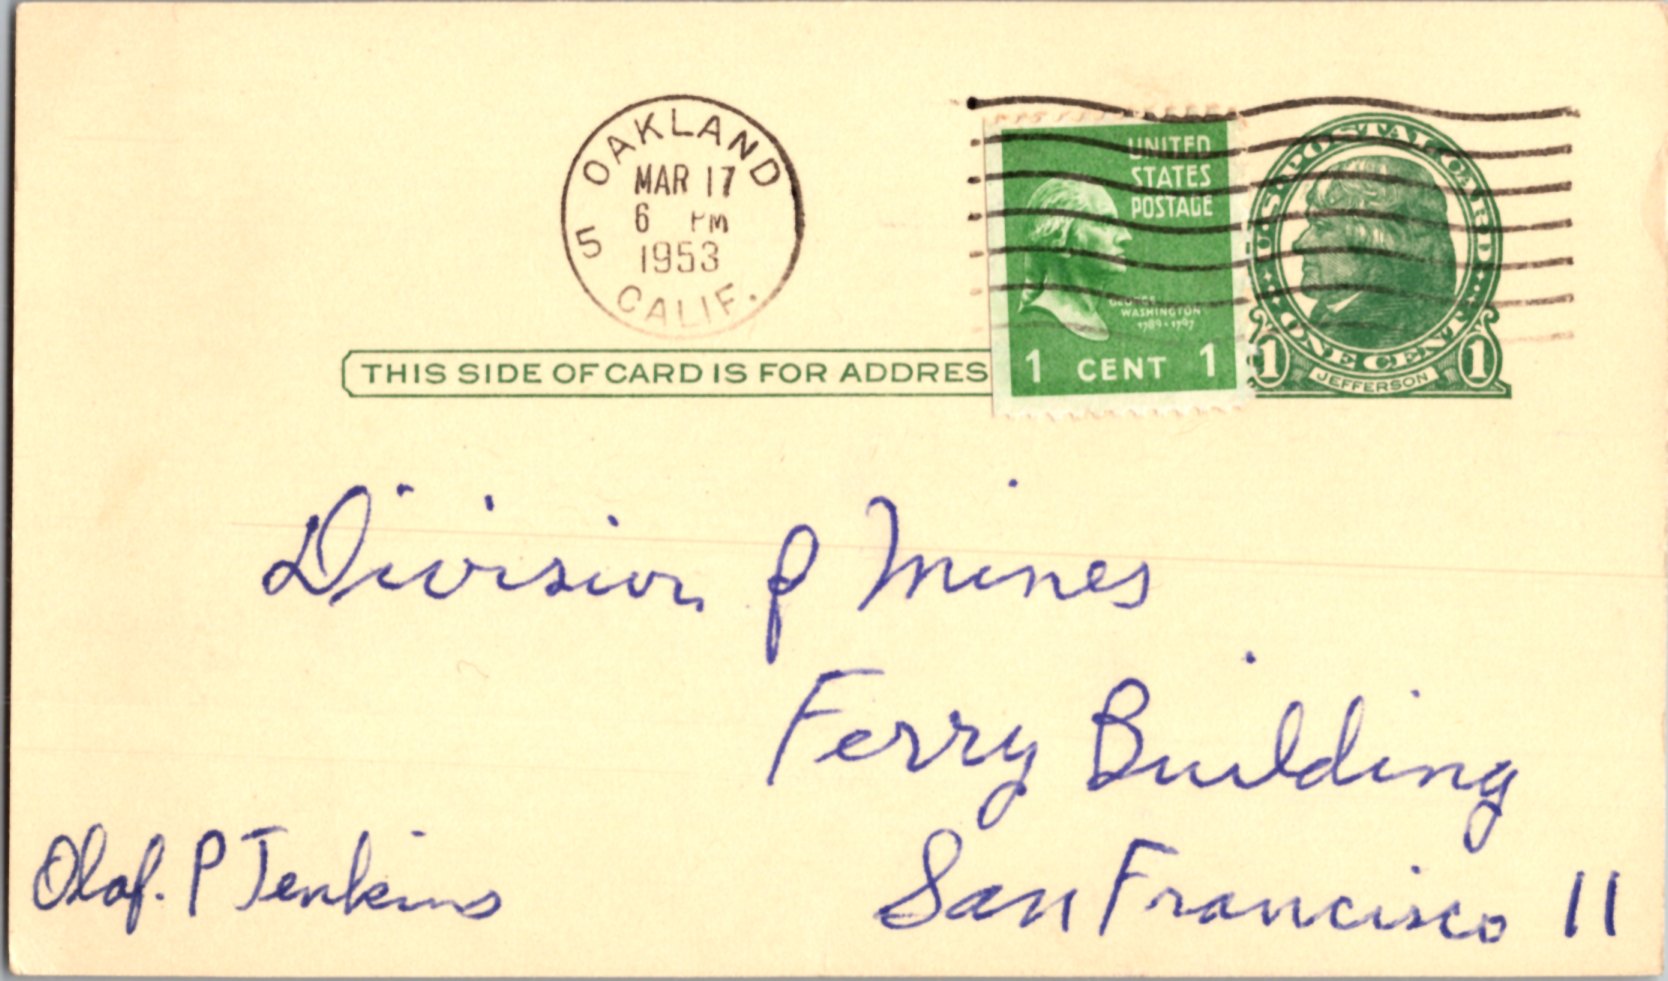 OAKLAND
MAR 17
6 PM
1953
5
CALIF.
UNITED
STATES
POSTAGE
GEORGE
WASHINGTON
1789-1797
1 CENT 1
U.S. POSTAL CARD
ONE CENT
1 JEFFERSON 1
THIS SIDE OF CARD IS FOR ADDRES
Division of Mines
Ferry Building
San Francisco 11
Olaf. P Jenkins